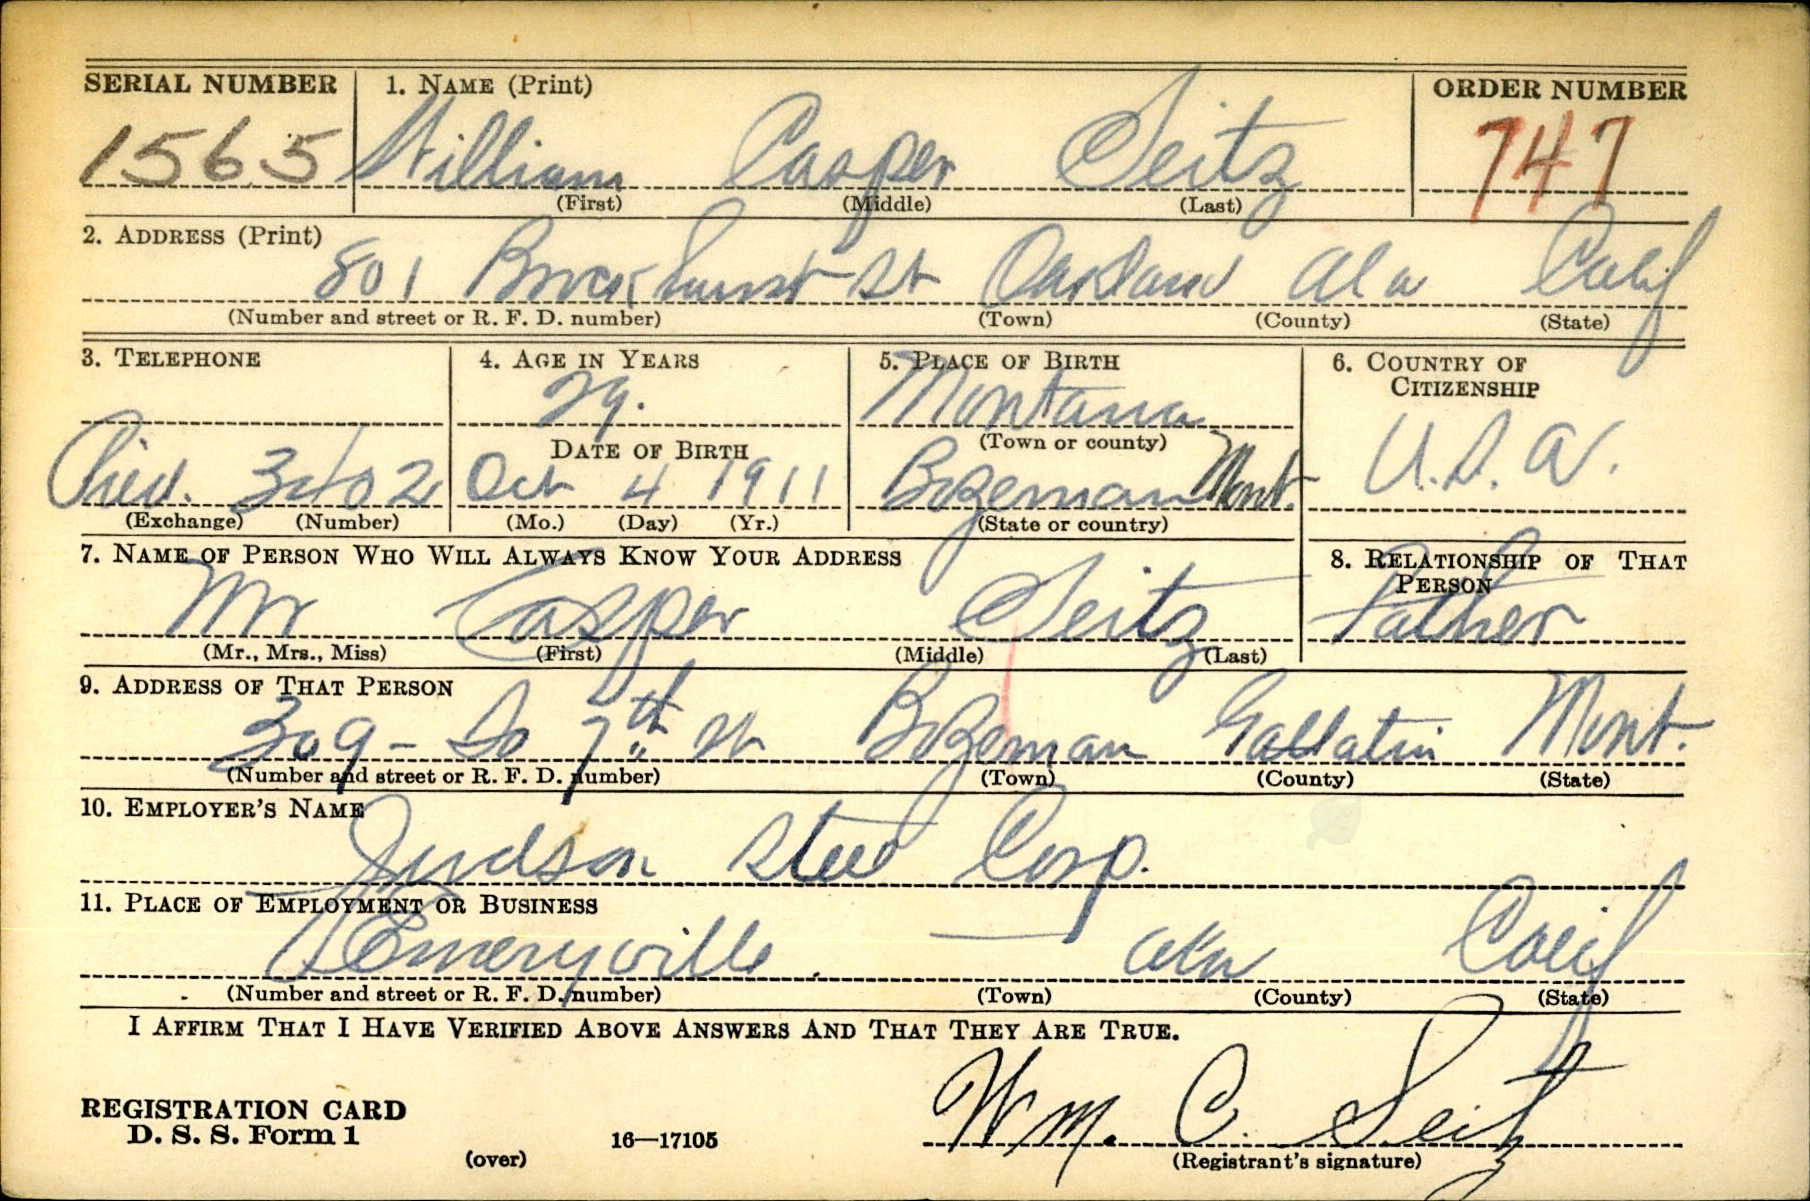 SERIAL NUMBER 1. NAME (Print) ORDER NUMBER
1565 William Casper Seitz 747
(First) (Middle) (Last)
2. ADDRESS (Print)
801 Brockhurst St Oakland Ala Calif
(Number and street or R. F. D. number) (Town) (County) (State)
3. TELEPHONE 4. AGE IN YEARS 5. PLACE OF BIRTH 6. COUNTRY OF CITIZENSHIP
29. Montana
DATE OF BIRTH (Town or county)
Pied. 3402 Oct 4 1911 Bozeman Mont. U.S.A.
(Exchange) (Number) (Mo.) (Day) (Yr.) (State or country)
7. NAME OF PERSON WHO WILL ALWAYS KNOW YOUR ADDRESS 8. RELATIONSHIP OF THAT PERSON
Mr Casper Seitz Father
(Mr., Mrs., Miss) (First) (Middle) (Last)
9. ADDRESS OF THAT PERSON
309 - So 7th St Bozeman Gallatin Mont.
(Number and street or R. F. D. number) (Town) (County) (State)
10. EMPLOYER'S NAME
Judson Steel Corp.
11. PLACE OF EMPLOYMENT OR BUSINESS
Emeryville Ala Calif
(Number and street or R. F. D. number) (Town) (County) (State)
I AFFIRM THAT I HAVE VERIFIED ABOVE ANSWERS AND THAT THEY ARE TRUE.
REGISTRATION CARD
D. S. S. Form 1 16—17105 Wm. C. Seitz
(over) (Registrant's signature)